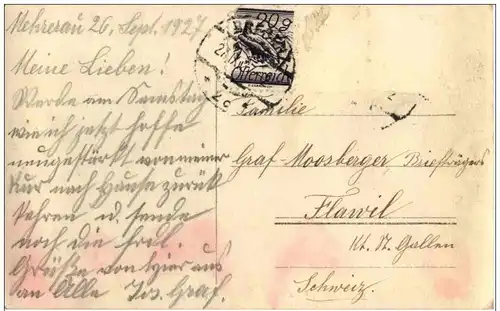 Mehrerau 26. Sept. 1927
Meine Lieben!
Werde am Samstag
wie ich jetzt hoffe
neugestärkt von meiner
Kur nach Hause zurück
kehren u. sende
noch die frdl.
Grüße von hier aus
an Alle Jos. Graf.
20 g
Österreich
Familie
Graf Moosberger, Briefträgers
Flawil
Kt. St. Gallen
Schweiz.